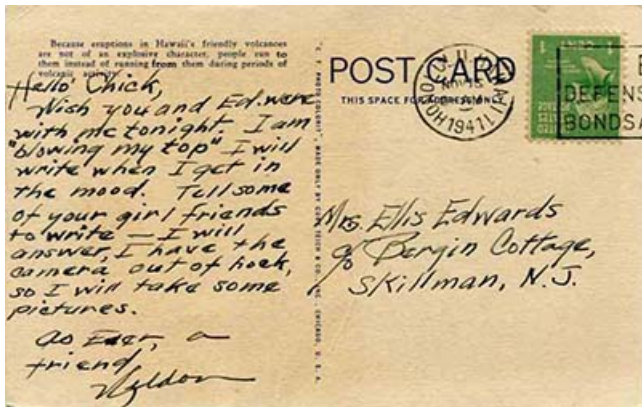 Because eruptions in Hawaii's friendly volcanoes
are not of an explosive character, people run to
them instead of running from them during periods of
volcanic activity.
Hello Chick,
Wish you and Ed. were
with me tonight. I am
"blowing my top" I will
write when I get in
the mood. Tell some
of your girl friends
to write — I will
answer, I have the
camera out of hock,
so I will take some
pictures.
As Ever, a
friend
POST CARD
THIS SPACE FOR ADDRESS ONLY
HONOLULU
1941
1 CENT 1
DEFENS
BONDSA
Mrs. Ellis Edwards
c/o Bergin Cottage,
Skillman, N.J.